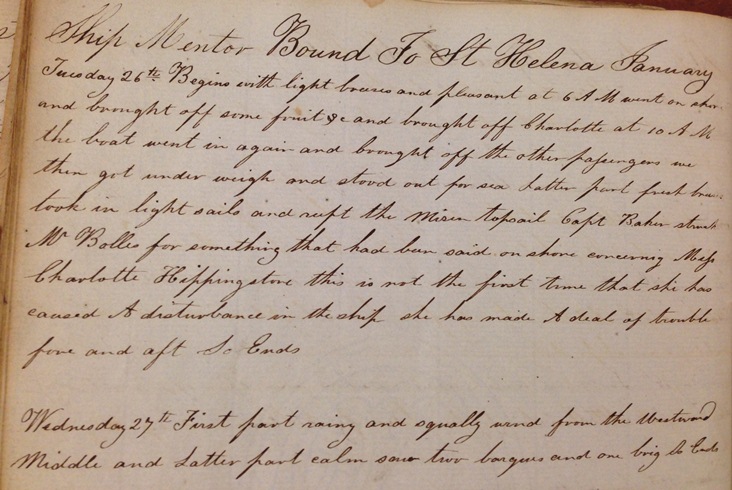 Ship Mentor Bound To St Helena January
Tuesday 26th Begins with light breeses and pleasant at 6 A M went on shor
and brought off some fruit &c and brought off Charlotte at 10 A M
the boat went in again and brought off the other passengers we
then got under weigh and stood out for sea Latter part fresh
took in light sails and reeft the Mizen topsail Capt Baker struck
Mr Bolles for something that had been said on shore concernig
Charlotte Hippingstone this is not the first time that she has
caused A disturbance in the ship she has made A deal of trouble
fore and aft So Ends
Wednesday 27th First part rainy and squally wind from the Westward
Middle and Latter part calm saw two barques and one brig So Ends